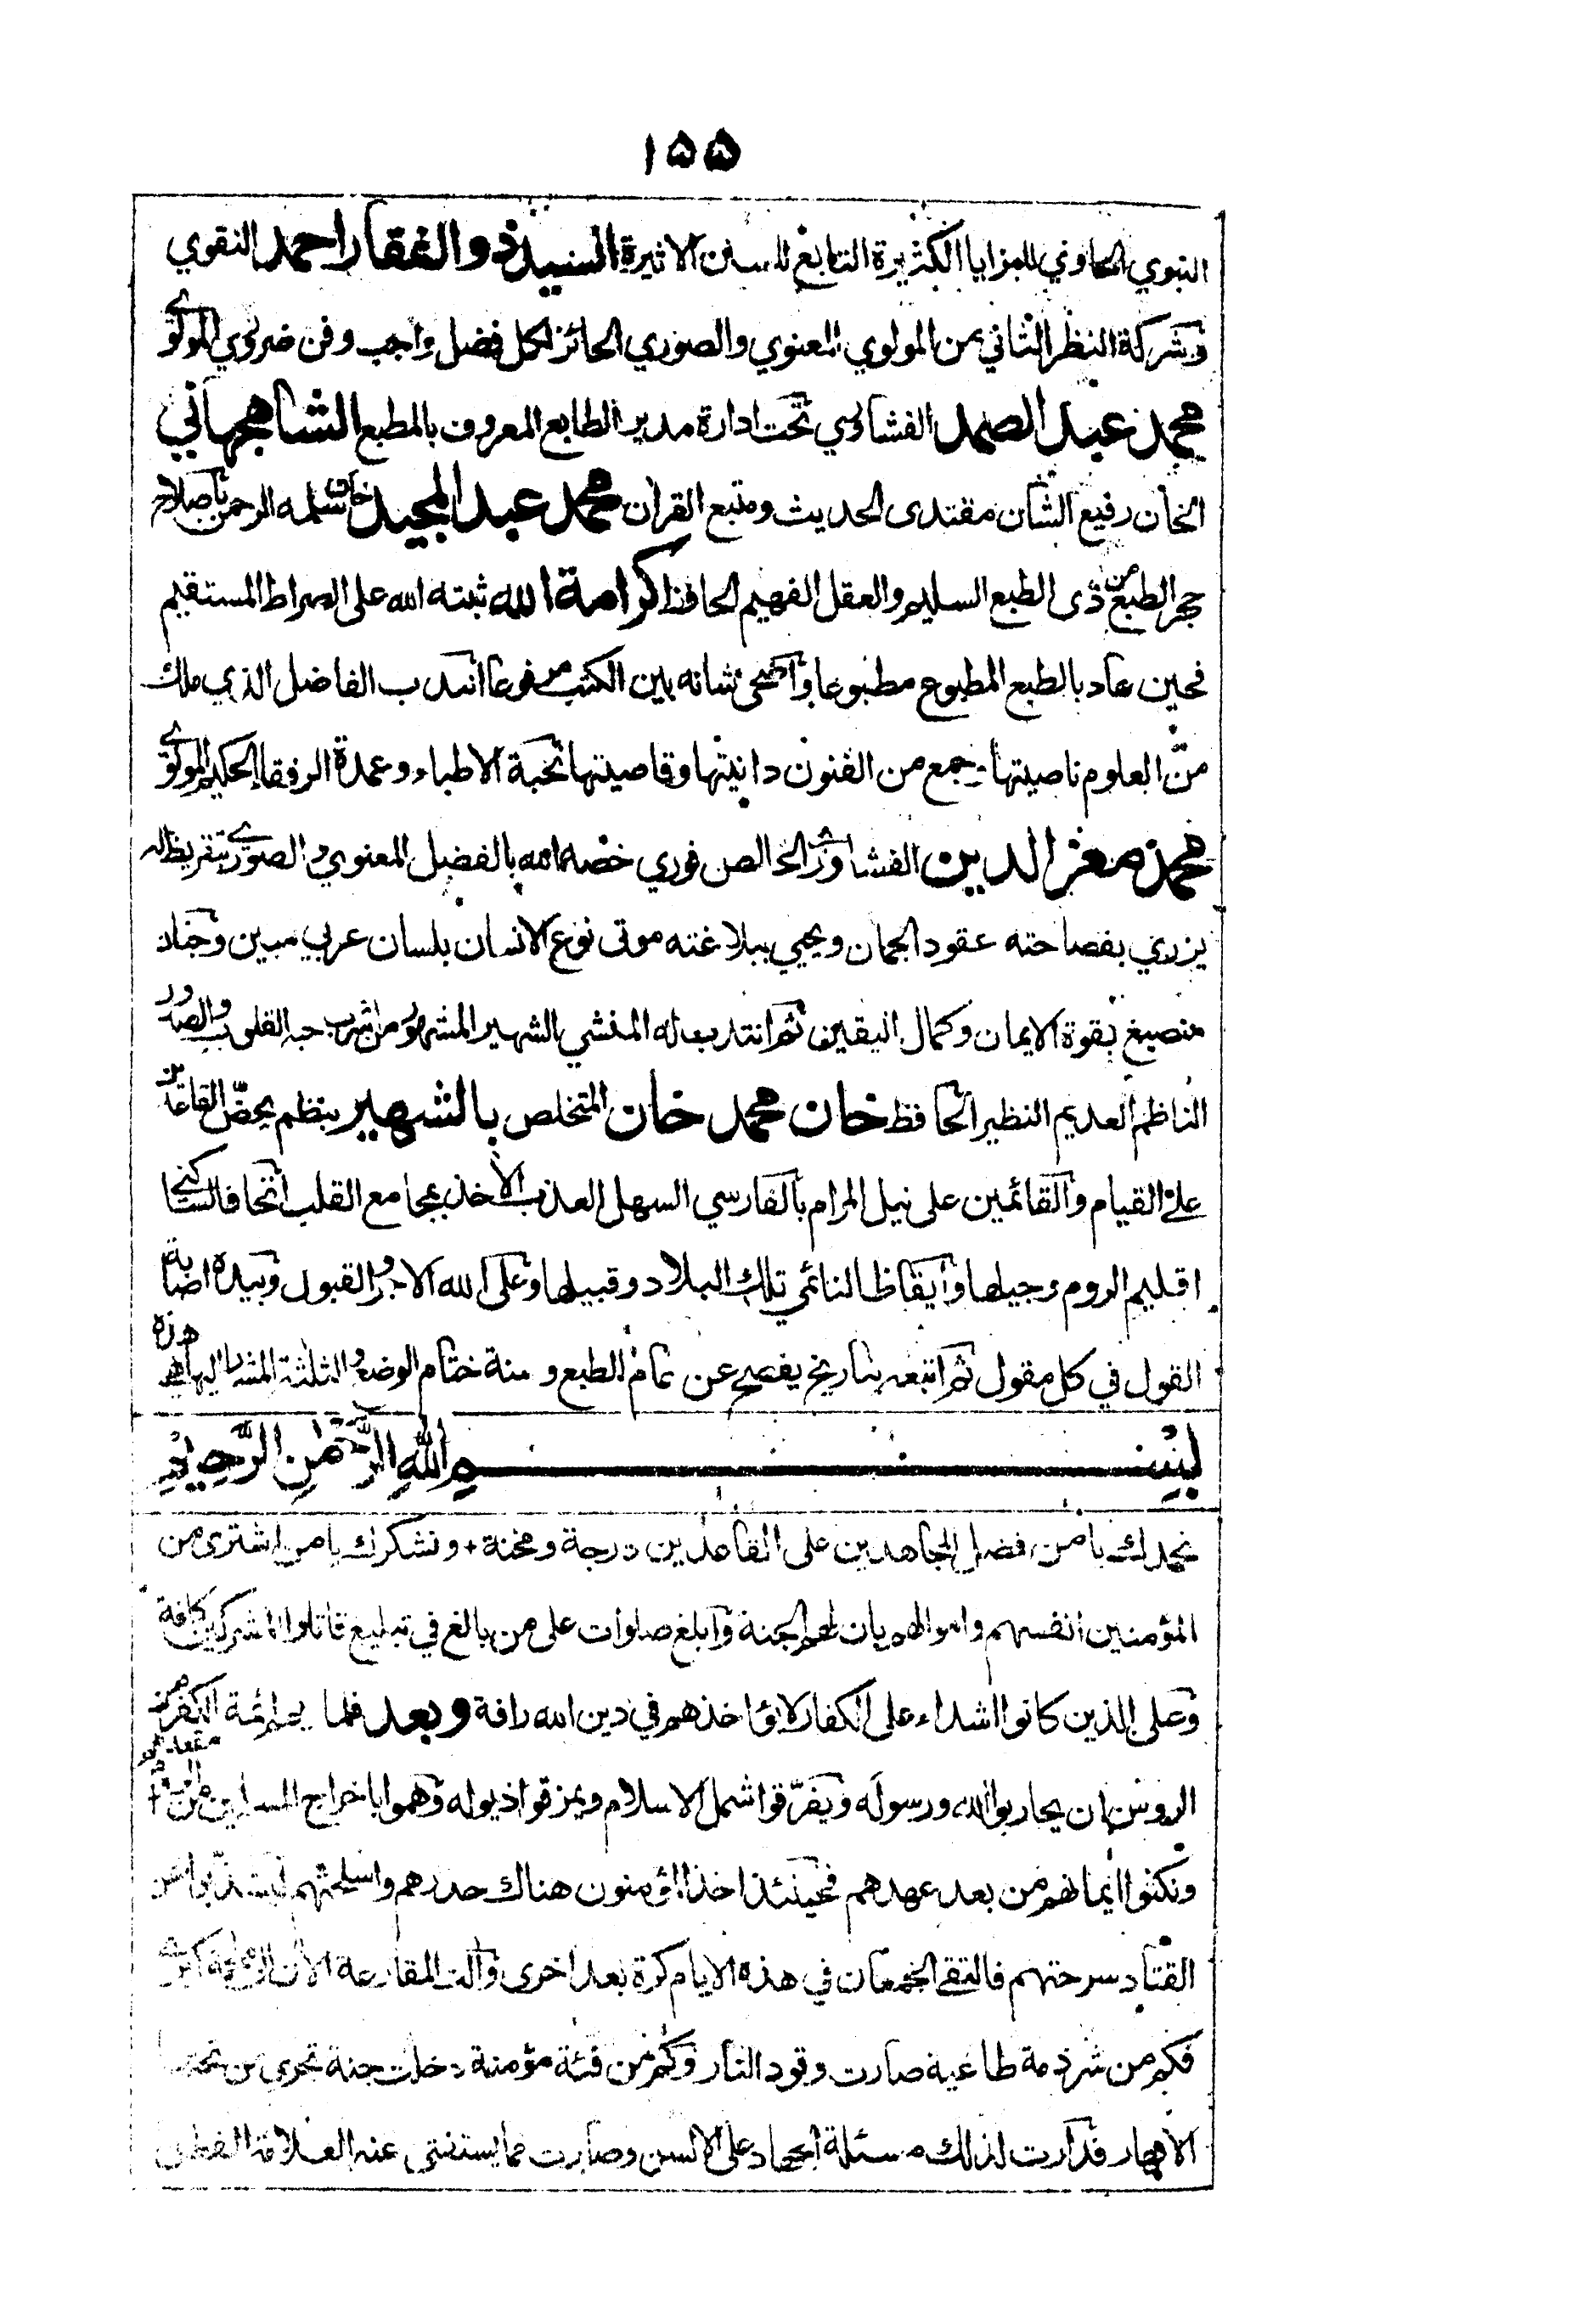 ١٥٥
النبوي الحاوي للمزايا الكثيرة التابع للسنن الاثيرة السيد ذو الفقار احمد النقوي
وشركة النظر الثاني من المولوي المعنوي والصوري الحائز لكل فضل واجب وفن ضروري المولوي
محمد عبد الصمد الفشاوري تحت ادارة مدير الطابع المعروف بالمطبع الشاهجهاني
الخان رفيع الشان مقتدى الحديث ومتبع القران محمد عبد المجيد خان سلمه الرحمن باصلاح
حجر الطبع من ذى الطبع السليم والعقل الفهيم الحافظ كرامة الله ثبته الله على الصراط المستقيم
فحين عاد بالطبع المطبوع مطبوعا واضحى شانه بين الكتب مرفوعا انتدب الفاضل الذي ملك
من العلوم ناصيتها وجمع من الفنون دانيتها وقاصيتها نخبة الاطباء وعمدة الرفقاء الحكيم المولوي
محمد معز الدين الفشاوري الخالص فوري خصه الله بالفضل المعنوي والصوري بتقريظ له
يزري بفصاحته عقود الجمان ويحيي ببلاغته موتى نوع الانسان بلسان عربي مبين وجنان
منصبغ بقوة الايمان وكمال اليقين ثم انتدب له المنشي الشهير المشهور من اشرب حبه القلوب والصدور
الناظم العديم النظير الحافظ خان محمد خان المتخلص بالشهير بنظم يحضّ القاعدين
على القيام والقائمين على نيل المرام بالفارسي السهل العذب الأخذ بمجامع القلب اتحافا لساكني
اقليم الروم وجيلها وايقاظا لنائمي تلك البلاد وقبيلها وعلى الله الاجر والقبول وبيده اصابة
القول في كل مقول ثم اتبعه بتاريخ يفصح عن تمام الطبع وسنة ختام الوضع والثلثة المشار اليها هي هذه
بسم الله الرحمن الرحيم
نحمدك يا من فضل المجاهدين على القاعدين درجة ومحنة + ونشكرك يا من اشترى من
المؤمنين انفسهم واموالهم بان لهم الجنة وابلغ صلوات على من بالغ في تبليغ قاتلوا المشركين كافة
وعلى الذين كانوا اشداء على الكفار لا تؤاخذهم في دين الله رافة وبعد فلما ائمة الكفر من
الروس ان يحاربوا الله ورسوله ويفرّقوا شمل الاسلام ويمزقوا ذيوله وهموا باخراج المسلمين من
ونكثوا ايمانهم من بعد عهدهم فحينئذ اخذ المؤمنون هناك حذرهم واسلحتهم
القتاد سرحتهم فالتقى الجمعان في هذه الايام كرة بعد اخرى وآلت المقارعة الآن
فكم من شرذمة طاغية صارت وقود النار وكم من فئة مؤمنة دخلت جنة تجري من تحتها
الانهار فدارت لذلك مسئلة الجهاد على الالسن وصارت مما يستفتى عنه العلامة